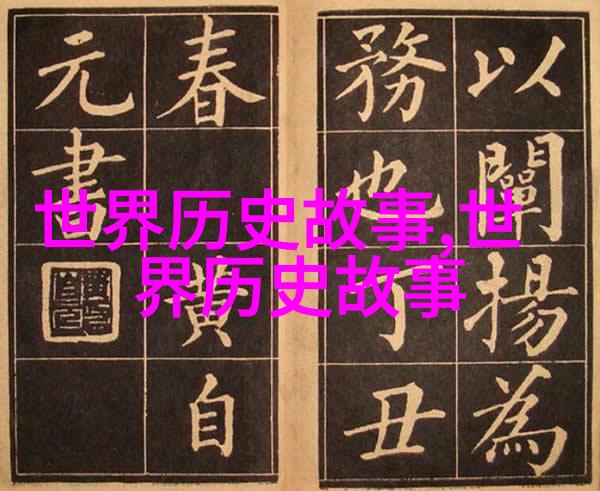 世界历史故事,世
界历史故事
以闡揚為
務也丁丑
春 黄自
元書